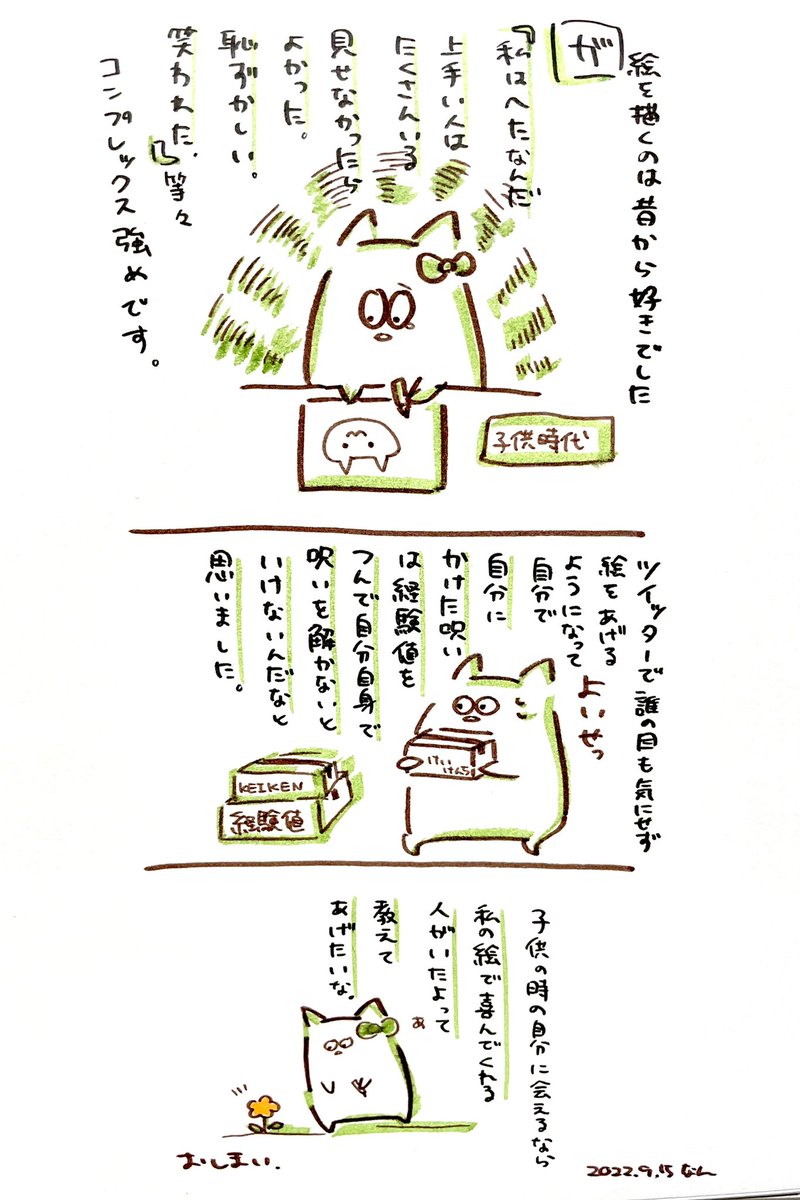 絵を描くのは昔から好きでした
が
『私はへたなんだ
上手い人は
たくさんいる
見せなかったら
よかった。
恥ずかしい。
笑われた.』等々
コンプレックス強めです。
子供時代
ツイッターで誰の目も気にせず
絵をあげる
ようになって
自分で
自分に
かけた呪い
は経験値を
つんで自分自身で
呪いを解かないと
いけないんだなと
思いました。
よいせっ
けい
けんち
KEIKEN
経験値
子供の時の自分に会えるなら
私の絵で喜んでくれる
人がいたよって
教えて
あげたいな。
あ
おしまい.
2022.9.15 なん